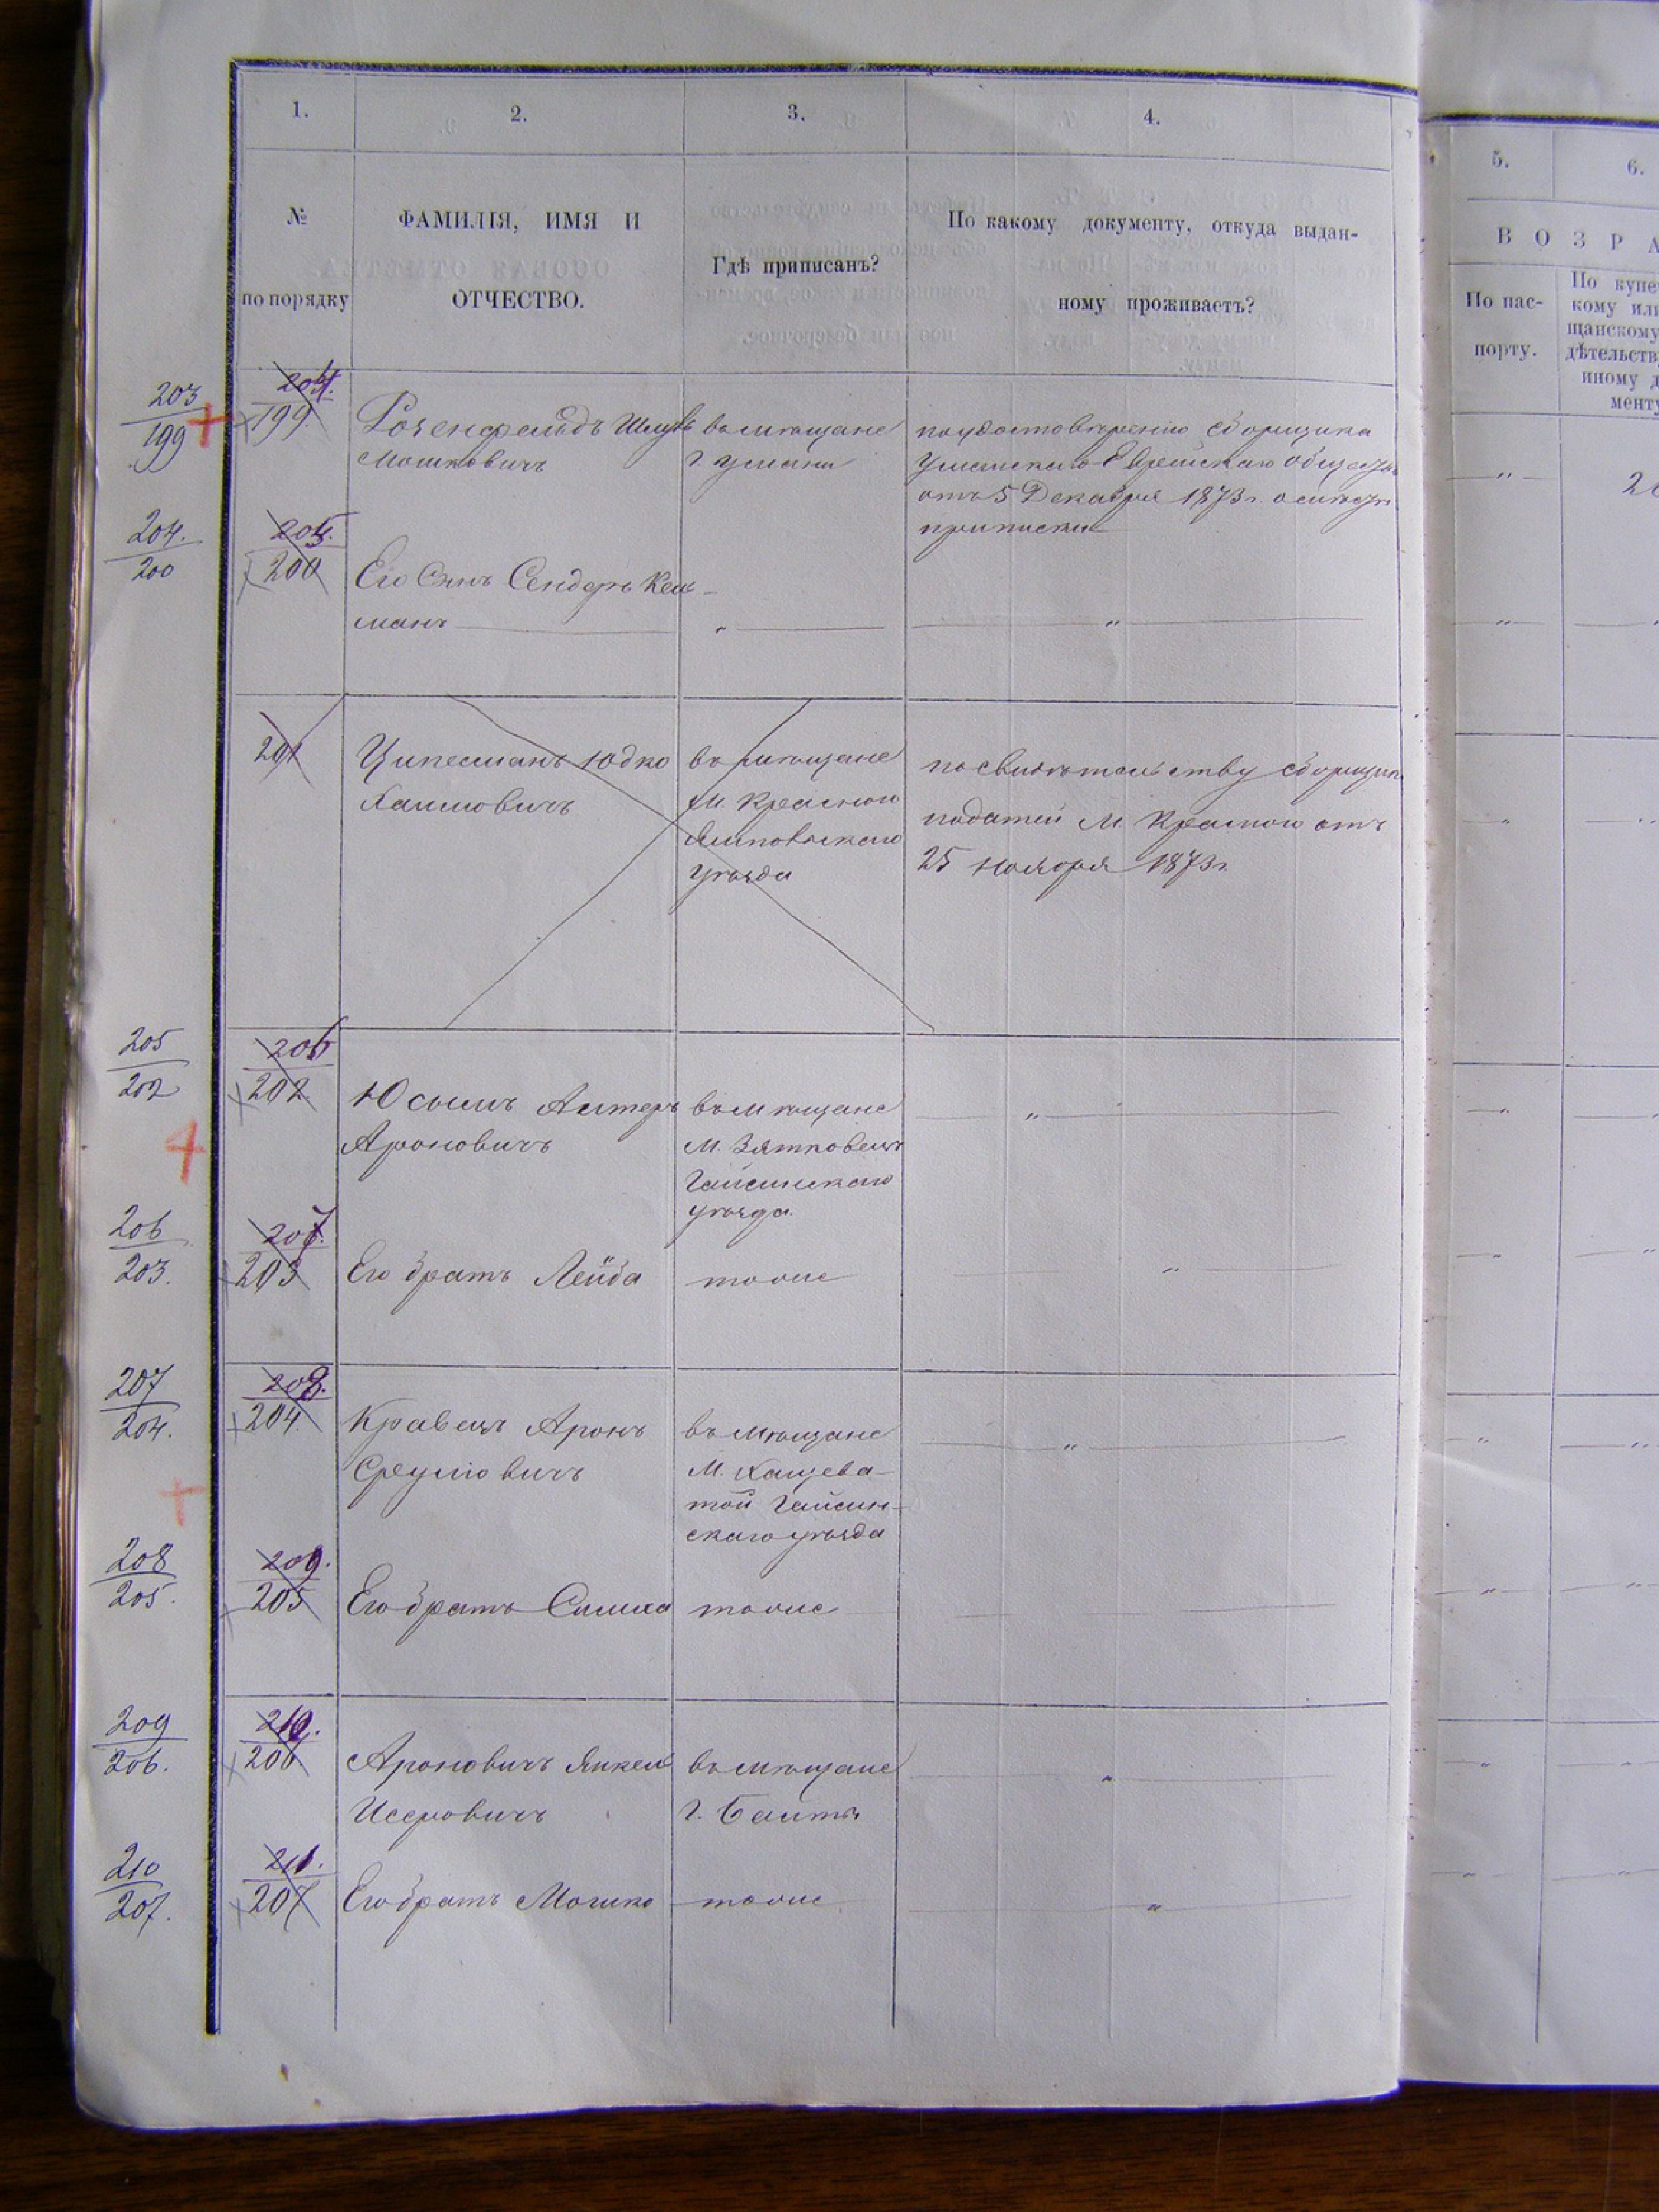 1.
2.
3.
4.
5.
6.
№
по порядку
ФАМИЛІЯ, ИМЯ И
ОТЧЕСТВО.
Гдѣ приписанъ?
По какому документу, откуда выдан-
ному проживаетъ?
ВОЗРА
По пас-
порту.
По купе
кому или
щанскому
дѣтельств
иному д
мент
203
199
204.
199.
Розенфельдъ Шмуль
Мошковичъ
въ мѣщане
г. Умани
по удостовѣренію сборщика
Уманскаго Еврейскаго Общества
отъ 5 Декабря 1873 г. о
приписки
204.
200
205.
200
Его Сынъ Сендеръ Кел-
манъ
201
Ципесманъ Юдко
Хаимовичъ
въ мѣщане
м. Красной
Ямповскаго
уѣзда
по свидѣтельству сборщика
податей м. Красной отъ
25 Ноября 1873 г.
205
202
206
202.
Юсимъ Алтеръ
Ароновичъ
въ мѣщане
м. Зятковецъ
Гайсинскаго
уѣзда.
206
203.
207.
203
Его братъ Лейба
тоже
207
204.
208.
204.
Кравецъ Аронъ
Сруліовичъ
въ мѣщане
м. Хащева-
той Гайсин-
скаго уѣзда
208
205.
209.
205
Его братъ Симха
тоже
209
206.
210.
206
Ароновичъ Янкель
Исеровичъ
въ мѣщане
г. Балты
210
207.
211.
207
Его братъ Мошко
тоже